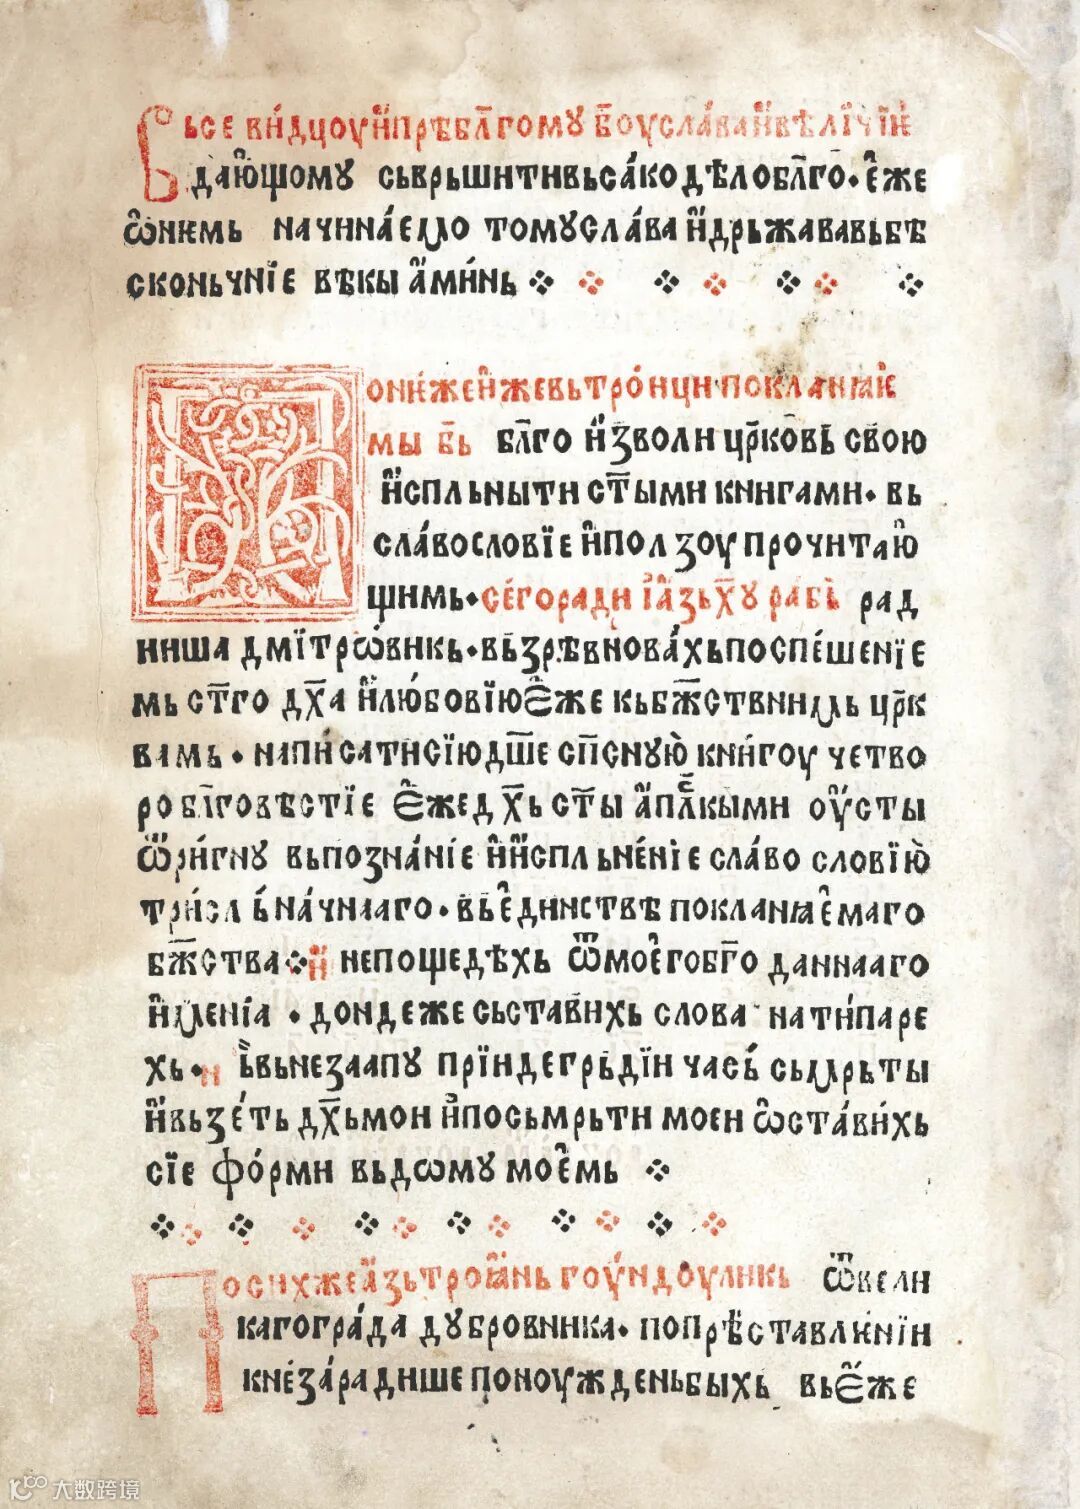 Вьсевидцоу и҆прѣбл҃гому б҃оуслава и҆вѣлїчїꙗ
даю҆щому сьврьшитивьсакодѣлобл҃го· е҆же
ѡ҆нкмь начинаемо томуслава и҆дрьжававьбѣ
сконьчнїе вѣкы а҆минь
Пониже и҆жевьтроици покланꙗю
мы б҃ь бл҃го и҆зволи цр҃ковь свою
и҆спльнити ст҃ыми книгами· вь
славословїе и҆ползоу прочитаю҆
щимь· сегоради і҆азь х҃у рабь рад
ниша дмїтрѡвикь· вьзрѣвновахьпоспешенїе
мь ст҃го дх҃а и҆любовїю є҆же кьбж҃ствнимь цр҃к
вамь· написатисїю дш҃е сп҃сную книгоу четво
робл҃говѣстїе є҆жедх҃ь ст҃ы а҆пл҃кыми оу҆сты
ѿригну вьпознанїе и҆и҆спльненїе славословїю
трисльначнааго· вье҆динствѣ покланꙗе҆маго
бж҃ства и҆ непощедѣхь ѿмое҆гоб҃го даннааго
и҆менїа· дондежесьставихь слова натипаре
хь· и вьнезаапу прїидегрьдїи час сьмрьты
и҆вьзеть дх҃ьмои и҆посьмрьти моеи ѡ҆ставихь
сїе форми вьдѡму мое҆мь
Посихже а҆зьтроꙗ҆нь гоундоуликь ѿвели
каго града дубровника· попрѣставлкнїи
кнеза радише поноужденьбыхь вьє҆же
大数跨境